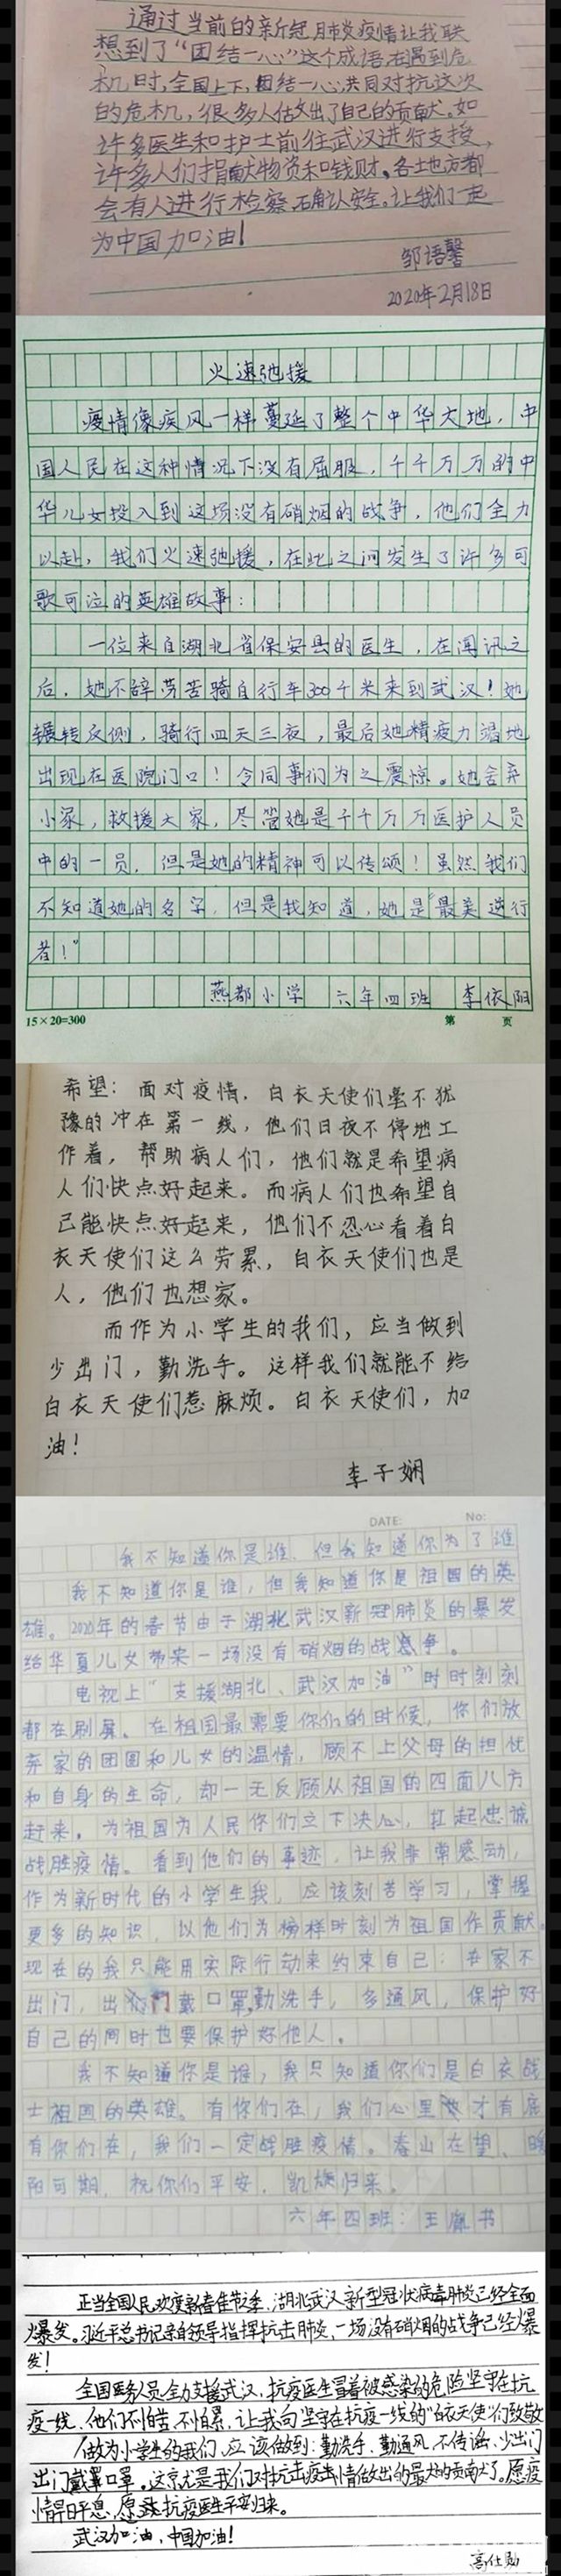 通过当前的新冠肺炎疫情让我联
想到了“团结一心”这个成语,在遇到危
机时,全国上下,团结一心,共同对抗这次
的危机,很多人估出了自己的贡献。如
许多医生和护士前往武汉进行支援,
许多人们捐献物资和钱财。各地方都
会有人进行检察,确认安全。让我们一起
为中国加油!
邹语馨
2020年2月18日
火速弛援
疫情像疾风一样蔓延了整个中华大地,中
国人民在这种情况下没有屈服,千千万万的中
华儿女投入到这场没有硝烟的战争,他们全力
以赴,我们火速弛援,在此之间发生了许多可
歌可泣的英雄故事:
一位来自湖北省保安县的医生,在闻讯之
后,她不辞劳苦骑自行车300千米来到武汉!她
辗转反侧,骑行四天三夜,最后她精疲力竭地
出现在医院门口!令同事们为之震惊。她舍弃
小家,救援大家,尽管她是千千万万医护人员
中的一员,但是她的精神可以传颂!虽然我们
不知道她的名字,但是我知道,她是“最美逆行
者!”
燕都小学 六年四班 李依阳
15×20=300 第 页
希望:面对疫情,白衣天使们毫不犹
豫的冲在第一线,他们日夜不停地工
作着,帮助病人们,他们就是希望病
人们快点好起来。而病人们也希望自
己能快点好起来,他们不忍心看着白
衣天使们这么劳累,白衣天使们也是
人,他们也想家。
而作为小学生的我们,应当做到
少出门,勤洗手。这样我们就能不给
白衣天使们惹麻烦。白衣天使们,加
油!
李子娴
DATE: No:
我不知道你是谁,但我知道你为了谁
我不知道你是谁,但我知道你是祖国的英
雄。2020年的春节由于湖北武汉新冠肺炎的暴发
给华夏儿女带来一场没有硝烟的战争。
电视上“支援湖北、武汉加油”时时刻刻
都在刷屏。在祖国最需要你们的时候,你们放
弃家的团圆和儿女的温情,顾不上父母的担忧
和自身的生命,却一无反顾从祖国的四面八方
赶来。为祖国为人民你们立下决心,扛起忠诚
战胜疫情。看到他们的事迹,让我非常感动,
作为新时代的小学生我,应该刻苦学习,掌握
更多的知识,以他们为榜样时刻为祖国作贡献。
现在的我只能用实际行动来约束自己:在家不
出门,出门戴口罩,勤洗手,多通风,保护好
自己的同时也要保护好他人。
我不知道你是谁,我只知道你们是白衣战
士祖国的英雄。有你们在,我们心里才有底
有你们在,我们一定战胜疫情。春山在望、暖
阳可期,祝你们平安,凯旋归来。
六年四班:王胤书
正当全国人民欢度新春佳节之季,湖北武汉新型冠状病毒肺炎已经全面
爆发。习近平总书记亲自领导指挥抗击肺炎,一场没有硝烟的战争已经爆
发!
全国医务人员全力支援武汉,抗疫医生冒着被感染的危险坚守在抗
疫一线,他们不怕苦,不怕累,让我向坚守在抗疫一线的“白衣天使”们致敬
做为小学生的我们,应该做到:勤洗手,勤通风,不传谣,少出门
出门戴罩口罩。这就是我们对抗击疫情做出的最大的贡献了。愿疫
情早日平息,愿抗疫医生平安归来。
武汉加油,中国加油!
高仕勋